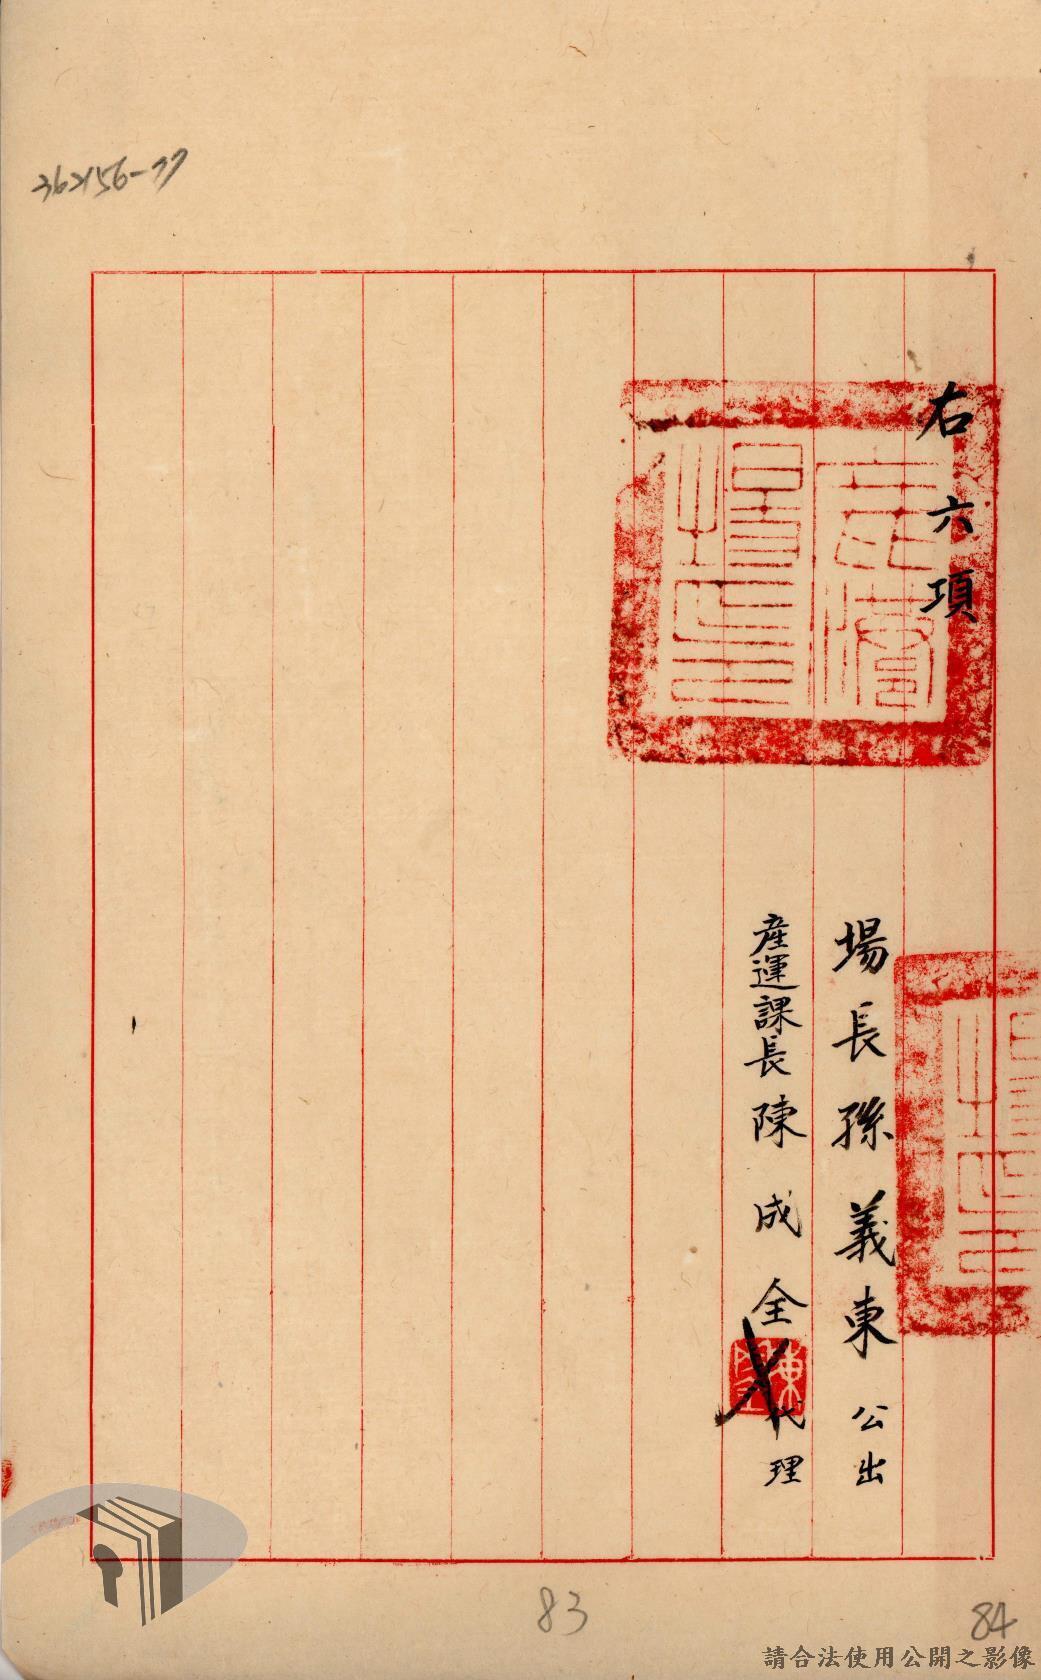 右六項
場長孫義東公出
產運課長陳成全代理
362156-77
83
84
請合法使用公開之影像